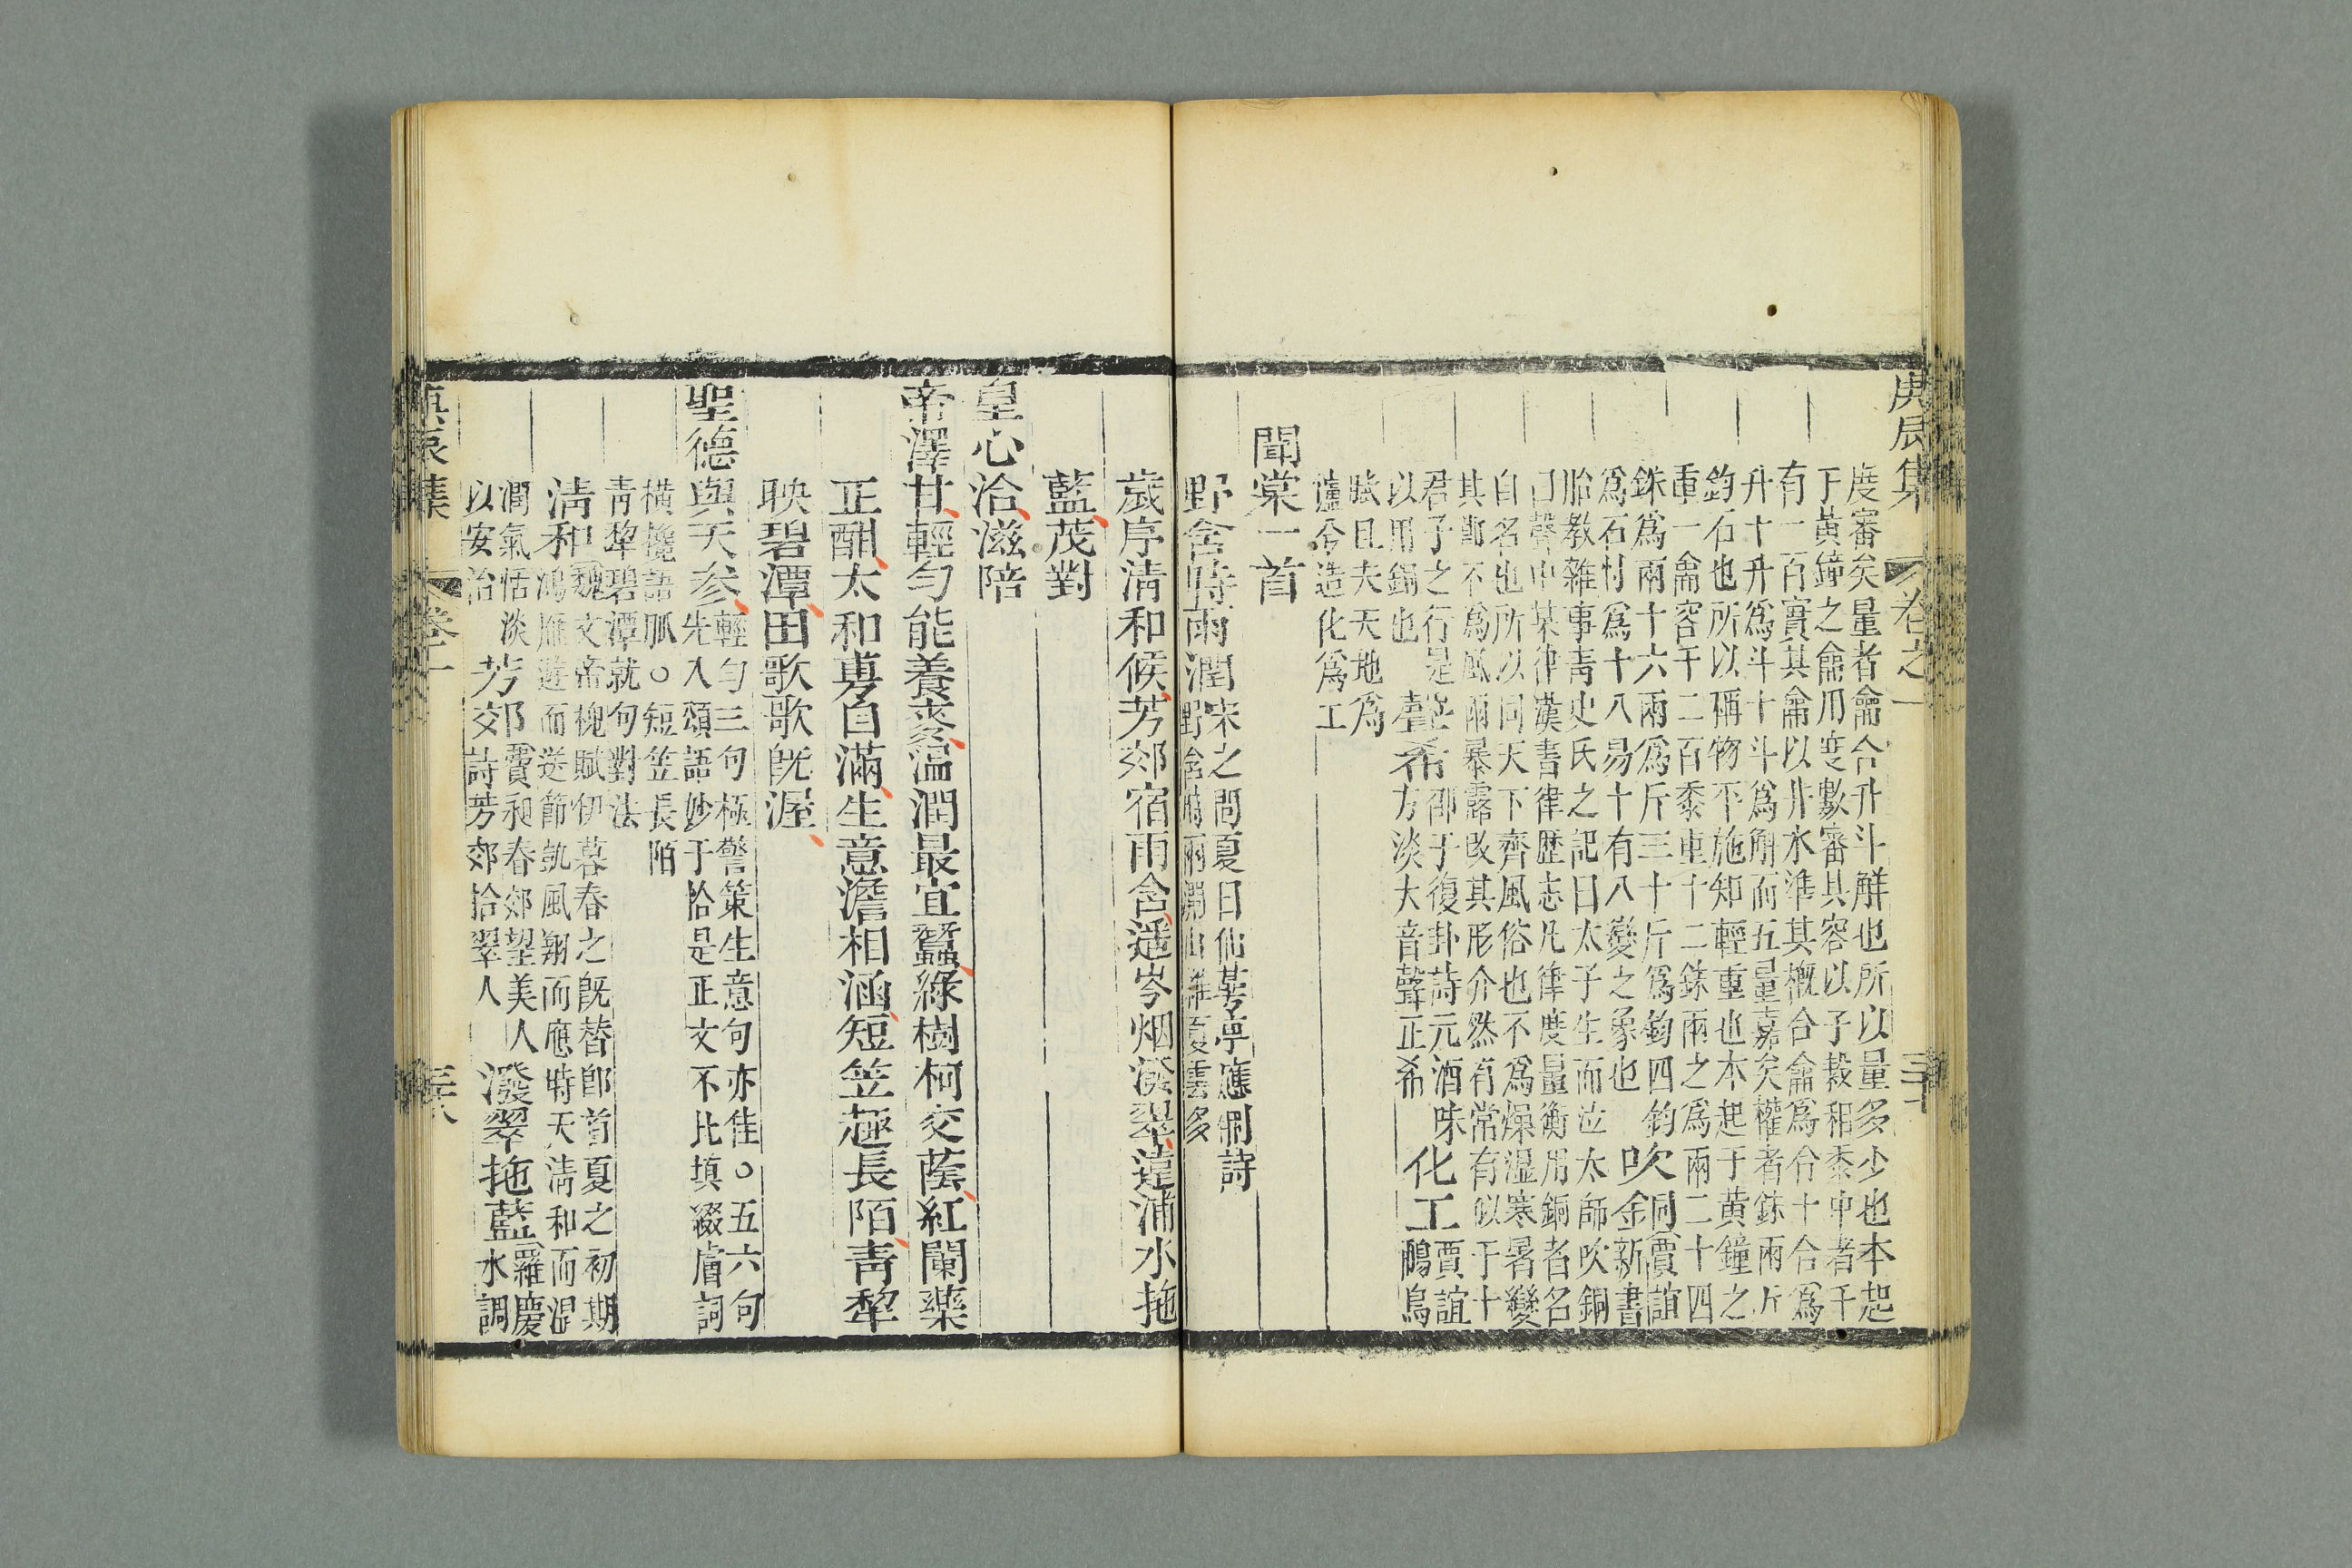 庚辰集
卷之一
三十
度審矣量者龠合升斗斛也所以量多少也本起
于黃鐘之龠用度數審其容以子穀秬黍中者千
有一百實其龠以井水準其概合龠爲合十合爲
升十升爲斗十斗爲斛而五量嘉矣權者銖兩斤
鈞石也所以稱物平施知輕重也本起于黃鐘之
重一龠容千二百黍重十二銖兩之爲兩二十四
銖爲兩十六兩爲斤三十斤爲鈞四鈞
爲石忖爲十八易十有八變之象也
吹銅
賈誼
新書
胎教雜事青史氏之記曰太子生而泣太師吹銅
曰聲中某律漢書律歷志凡律度量衡用銅者名
自名也所以同天下齊風俗也不爲燥湿寒暑變
其節不爲風雨暴露改其形介然有常有似于十
君子之行是
以用銅也
聲希
邵子復卦詩元酒味
方淡大音聲正希
化工
賈誼
鵩鳥
賦且夫天地爲
爐兮造化爲工
聞棠一首
野含時雨潤
宋之問夏日仙萼亭應制詩
野含時雨潤山雜夏雲多
歲序淸和候芳郊宿雨含遥岑烟潑翠遠浦水拖
藍茂對
皇心洽滋陪
帝澤甘輕勻能養麥溫潤最宜蠶綠樹柯交蔭紅闌藥
正酣太和專自滿生意澹相涵短笠趁長陌靑犂
映碧潭田歌歌旣渥
聖德與天參
輕勻三句極警策生意句亦佳○五六句
先入頌語妙于恰是正文不比填綴膚詞
橫攙語脈○短笠長陌
靑犂碧潭就句對法
淸和
魏文帝槐賦伊暮春之旣替卽首夏之初期
鴻雁遊而送節凱風翔而應時天淸和而温
潤氣恬淡
以安治
芳郊
賈昶春郊望美人
詩芳郊拾翠人
潑翠拖藍
羅慶
水調
庚辰集
卷之一
三十八